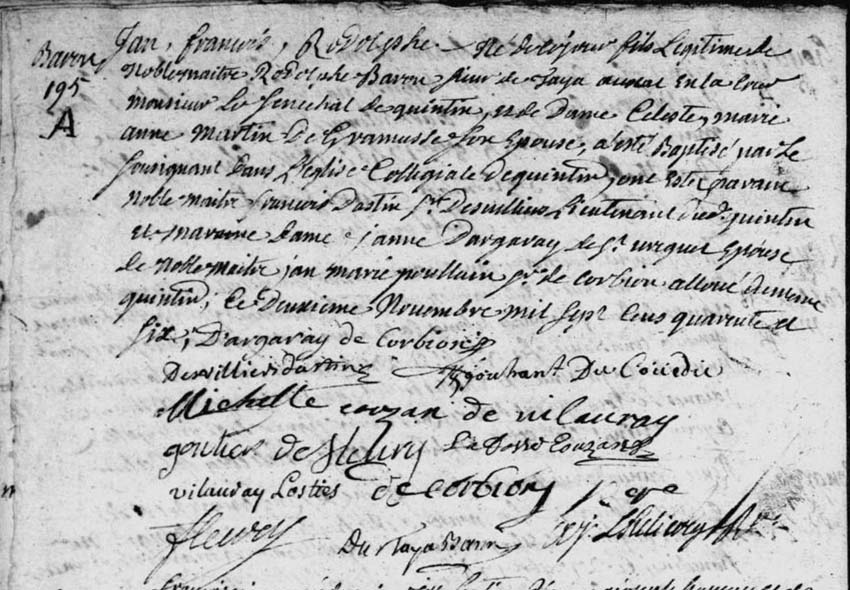 Baron
195
A
Jan, francois, Rodolphe Né de ce jour fils Legitime de
Noble maitre Rodolphe Baron sieur de Taya avocat En la Cour
monsieur Le senechal de quintin, et de Dame Celeste, marie
anne Martin De Gramusse son Epouse, a esté Baptisé par Le
sousignant dans L'Eglise Collegiale de quintin, ont Esté parain
Noble maitre francois Dastin sr. Desvilliers Lieutenant du dt. quintin
et maraine Dame janne Dargaray de st. urguet Epouse
de Noble maitre jan marie poullain sr. de Corbion alloué de meme
quintin; Ce Deuxieme Novembre mil sept Cens quarente et
six; Dargaray de Corbion
Desvilliers dastin jouhant Du Couëdic
Michelle couzan de vilauray
goutier de fleury La
vilauray Losties de corbion
fleury Du Taya Baron